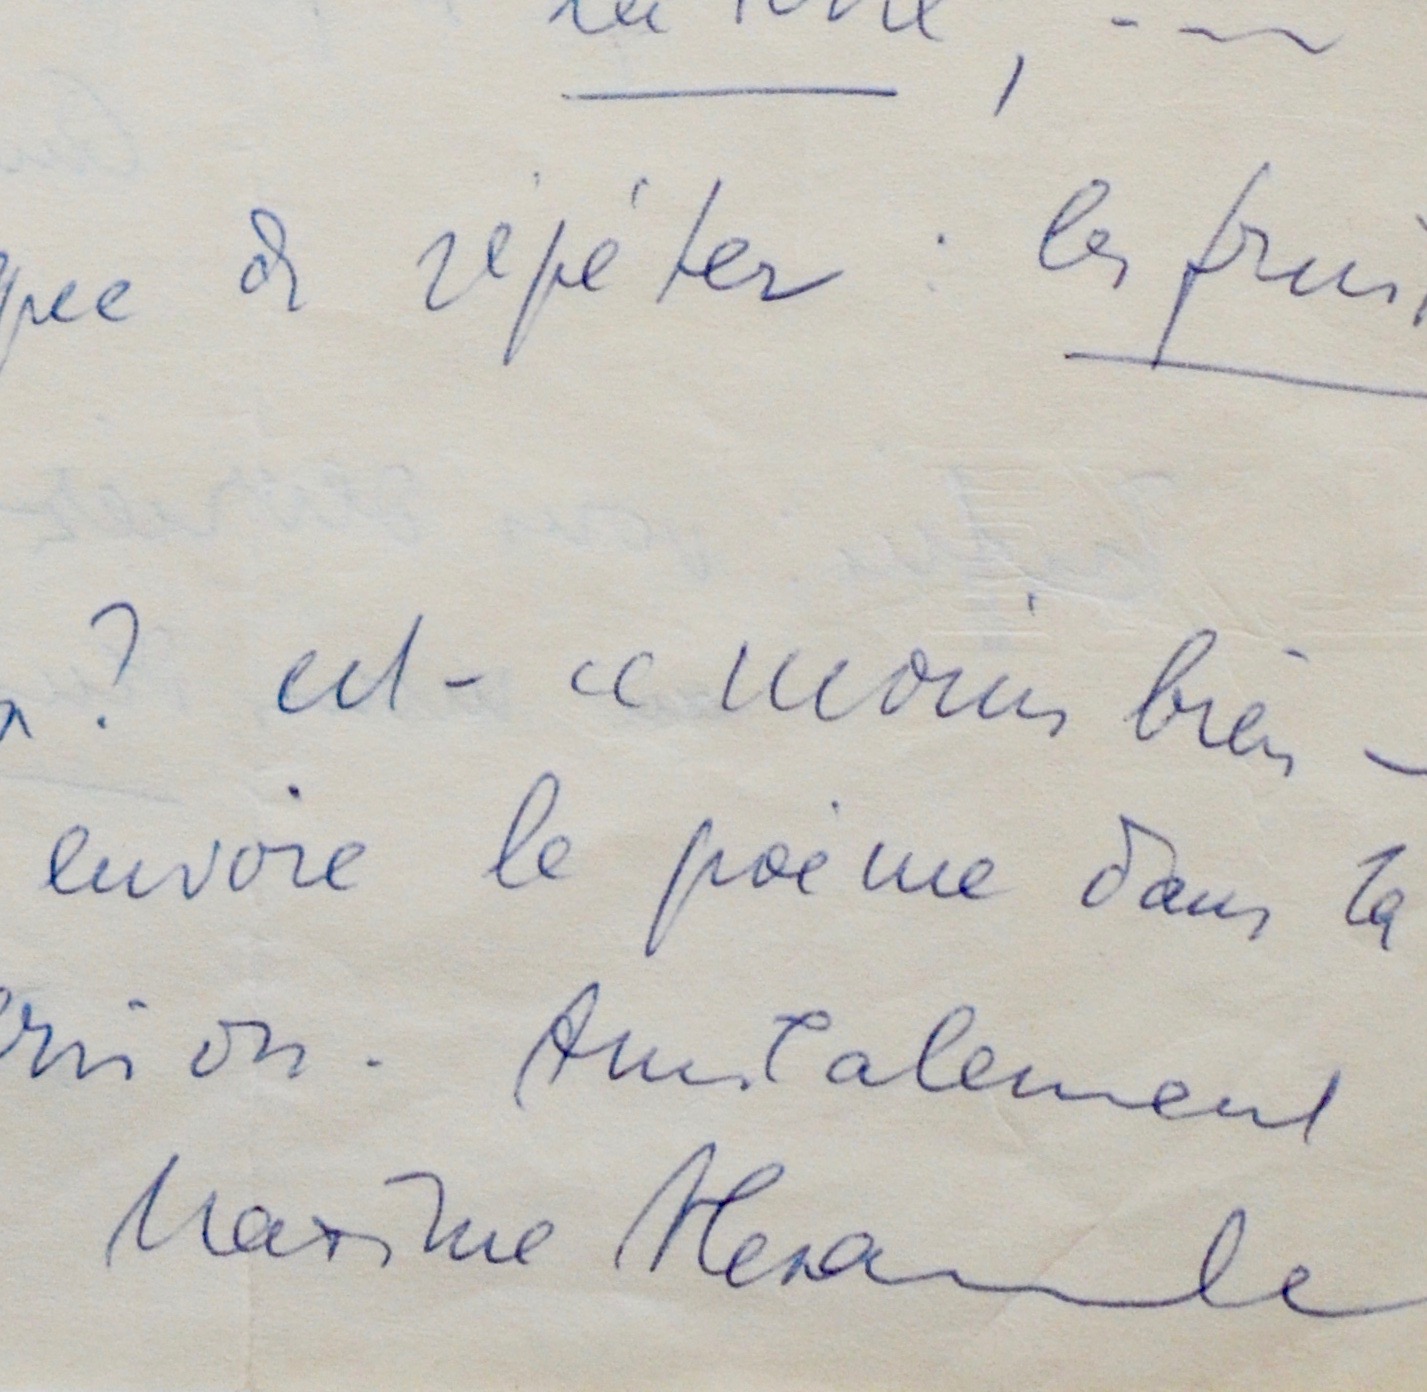 la terre, - ~
de répéter : les fruit
? est-ce moins bien -
envoie le poème dans la
ersion. Amicalement
Maxime Alexandre